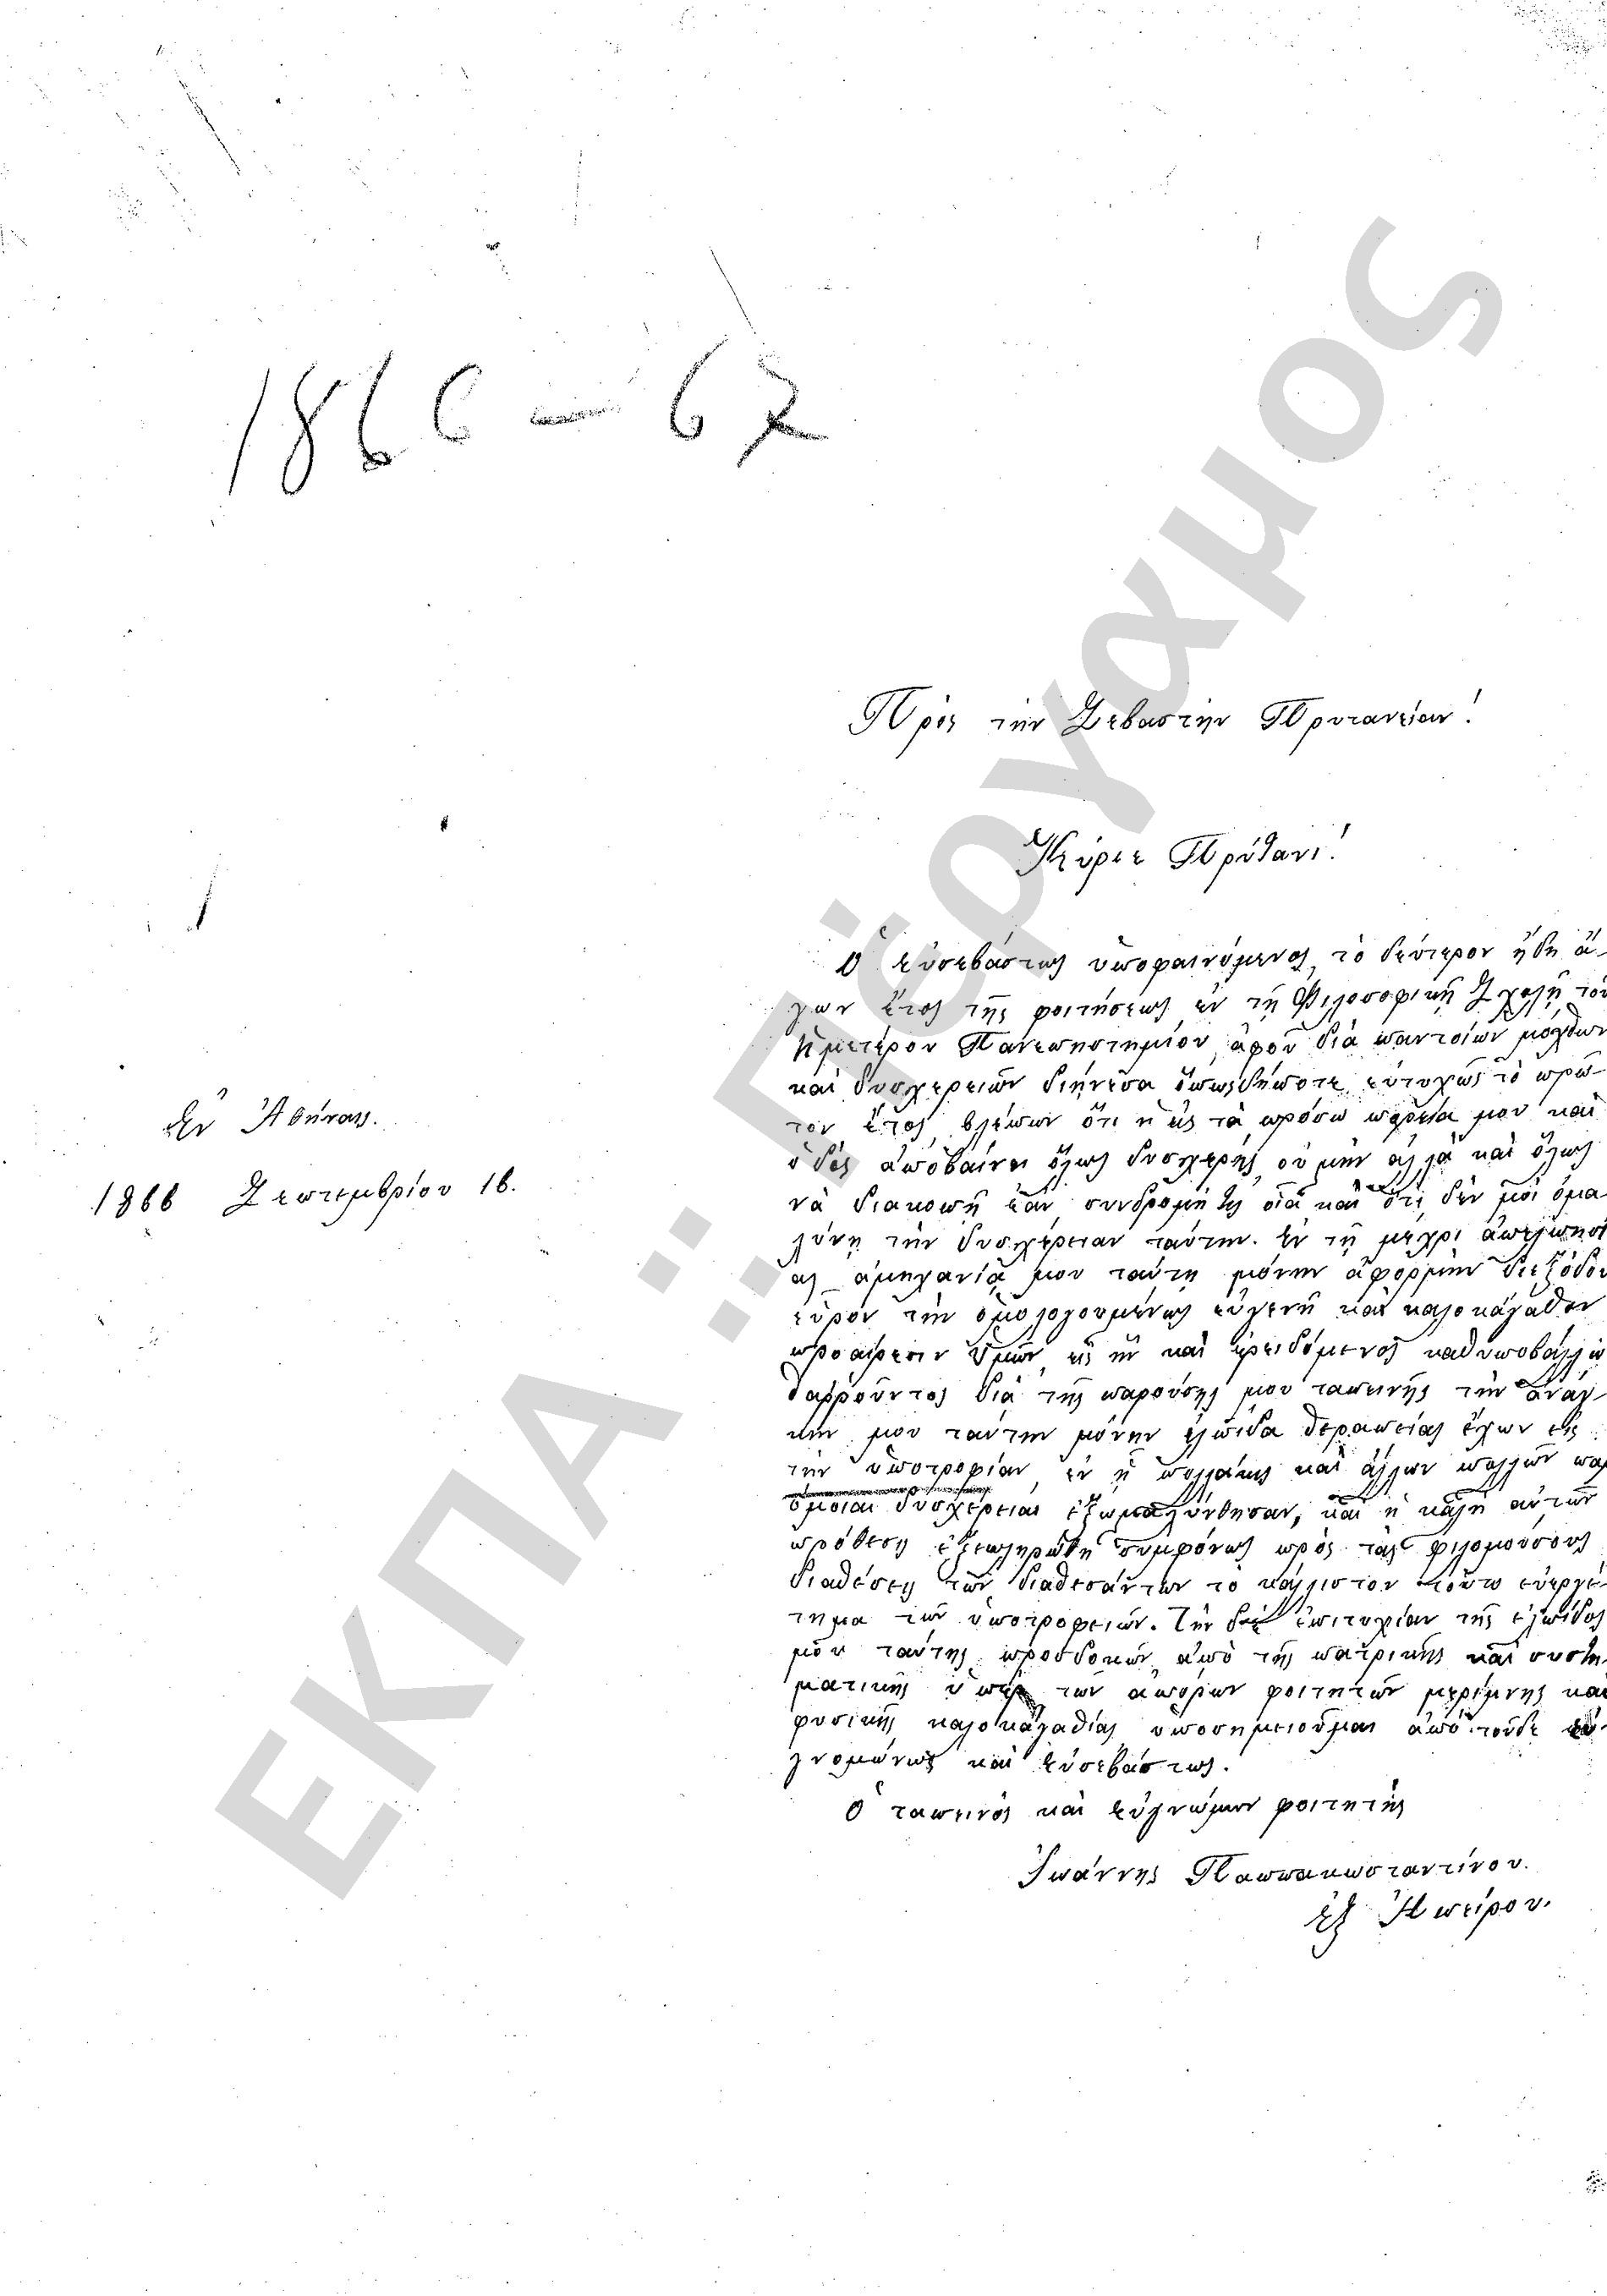 1866 — 67
Πρὸς τὴν Σεβαστὴν Πρυτανείαν!
Κύριε Πρύτανι!
Ὁ εὐσεβάστως ὑποφαινόμενος, τὸ δεύτερον ἤδη ἄ-
γων ἔτος τῆς φοιτήσεως ἐν τῇ Φιλοσοφικῇ Σχολῇ τοῦ
Ἡμετέρου Πανεπιστημίου, ἀφοῦ διὰ παντοίων μόχθων
καὶ δυσχερειῶν διήνυσα ὁπωςδήποτε εὐτυχῶς τὸ πρῶ-
τον ἔτος, βλέπων ὅτι ἡ εἰς τὰ πρόσω πορεία μου καὶ
ὁδὸς ἀποβαίνει ὅλως δυσχερής, οὐ μὴν ἀλλὰ καὶ ὅλως
νὰ διακοπῇ ἐὰν συνδρομή τις οἵα καὶ ὅτι δὲν μοὶ ὁμα
λύνῃ τὴν δυσχέρειαν ταύτην. Ἐν τῇ μέχρι ἀπελπισί
ας ἀμηχανίᾳ μου ταύτῃ μόνην ἀφορμὴν διεξόδου
εὗρον τὴν ὁμολογουμένως εὐγενῆ καὶ καλοκἀγαθον
προαίρεσιν Ὑμῶν, εἰς ἣν καὶ ἐρειδόμενος καθυποβάλλω
θαρρούντως διὰ τῆς παρούσης μου ταπεινῆς τὴν ἀνάγ-
κην μου ταύτην μόνην ἐλπίδα θεραπείας ἔχων εἰς
τὴν ὑποτροφίαν, ἐν ᾗ πολλάκις καὶ ἄλλων πολλῶν παρ
όμοιαι δυσχέρειαι ἐξωμαλύνθησαν, καὶ ἡ καλὴ αὐτῶν
πρόθεσις ἐξεπληρώθη συμφώνως πρὸς τὰς φιλομούσους
διαθέσεις τῶν διαθεσάντων τὸ κάλλιστον τοῦτο εὐεργέ-
τημα τῶν ὑποτροφειῶν. Τὴν δὲ ἐπιτυχίαν τῆς ἐλπίδος
μου ταύτης προσδοκῶν ἀπὸ τῆς πατρικῆς καὶ συστη-
ματικῆς ὑπὲρ τῶν ἀπόρων φοιτητῶν μερίμνης καὶ
φυσικῆς καλοκἀγαθίας ὑποσημειοῦμαι ἀπὸ τοῦδε εὐ-
γνομώνως καὶ εὐσεβάστως.
Ὁ ταπεινὸς καὶ εὐγνώμων φοιτητὴς
Ἰωάννης Παππακωσταντίνου.
ἐξ Ἠπείρου.
Ἐν Ἀθήναις.
1866 Σεπτεμβρίου 16.
ΕΚΠΑ::Πέργαμος